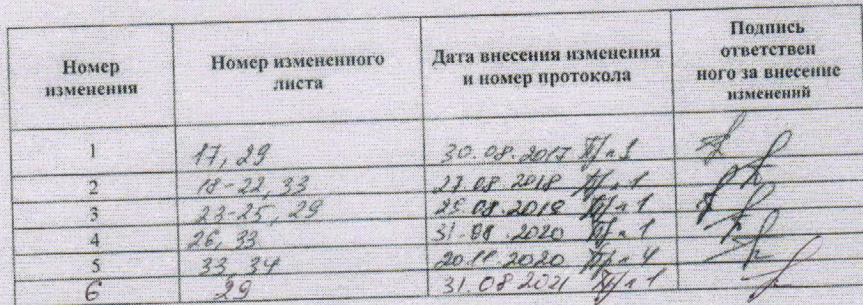 Номер изменения
Номер измененного листа
Дата внесения изменения и номер протокола
Подпись ответствен ного за внесение изменений
1 17, 29 30.08.2017
2 18-22, 33 27.08.2018
3 23-25, 29 29.08.2019
4 26, 33 31.08.2020
5 33, 34 20.11.2020
6 29 31.08.2021